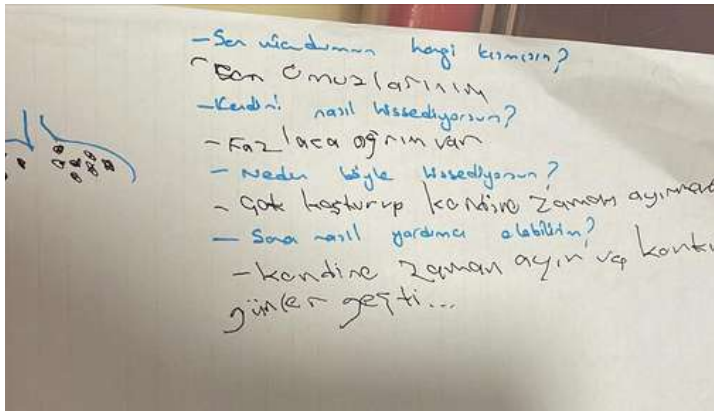 - Sen vücudumun hangi kısmısın?
- Ben omuzlarınım
- Kendini nasıl hissediyorsun?
- Fazlaca ağrım var
- Neden böyle hissediyorsun?
- Çok koşturup kendine zaman
- Sana nasıl yardımcı olabilirim?
- kendine zaman ayır ve
günler geçti...